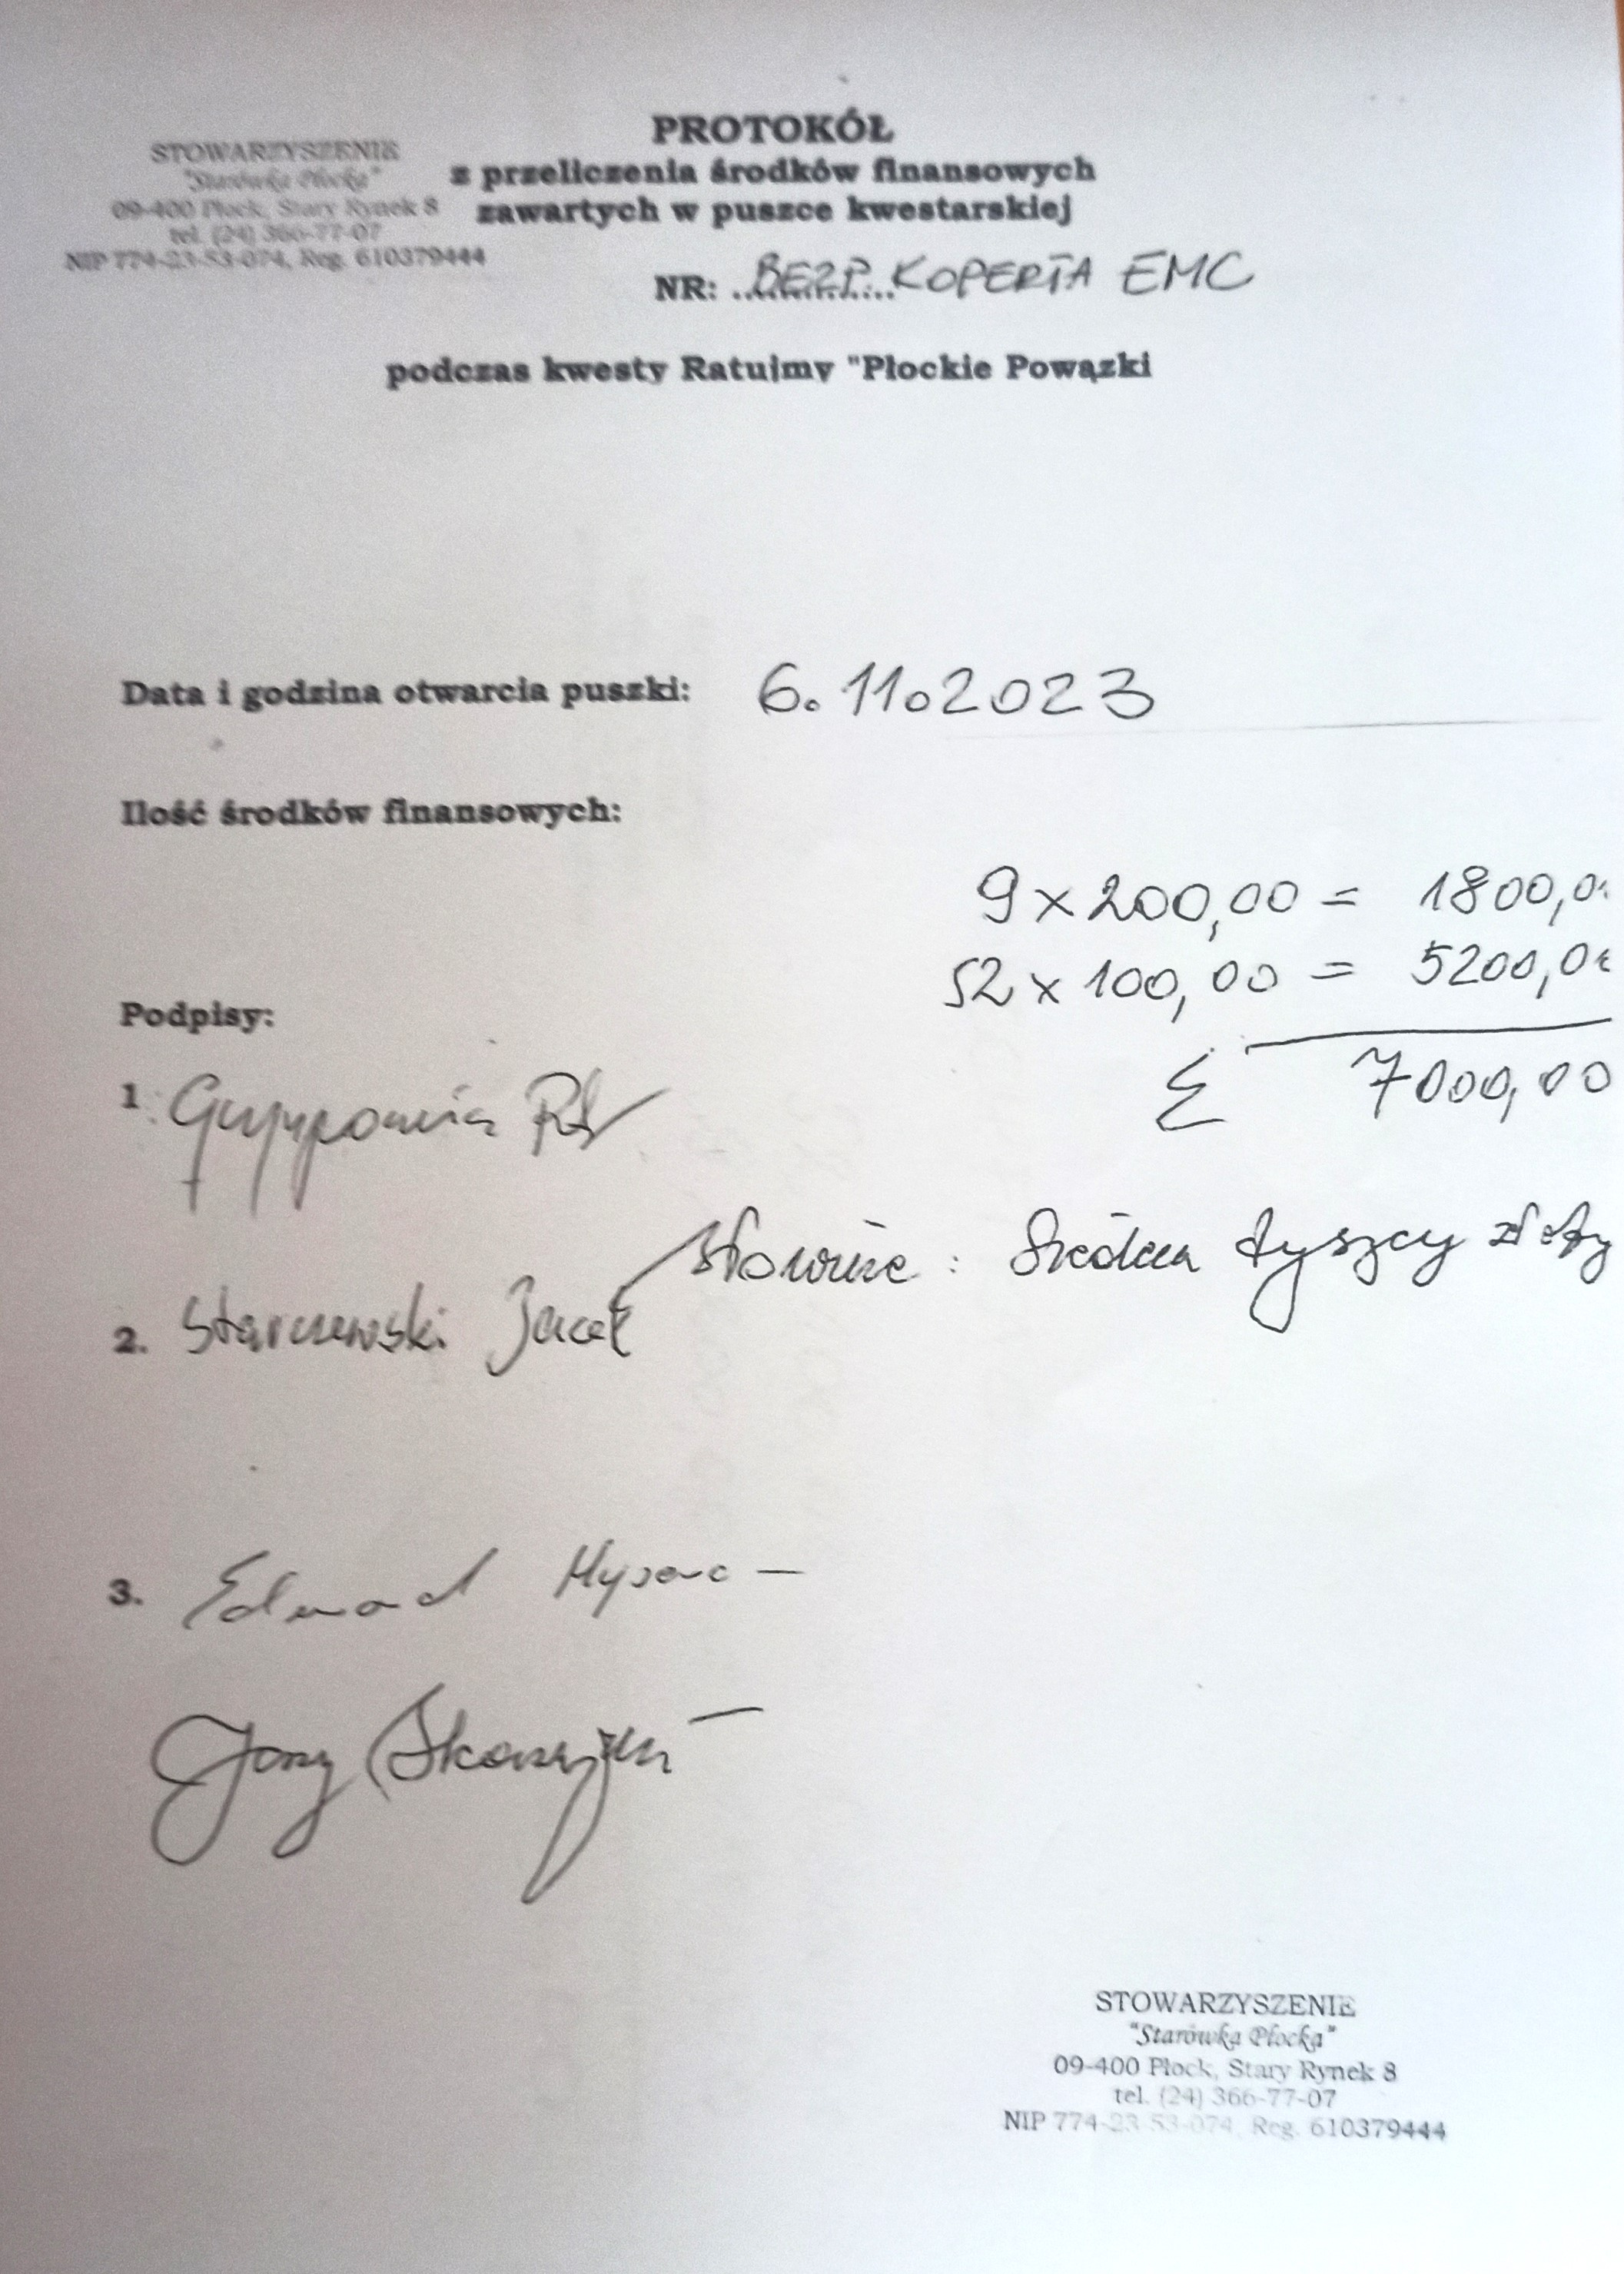 STOWARZYSZENIE
"Starówka Płocka"
09-400 Płock, Stary Rynek 8
tel. (24) 366-77-07
NIP 774-23-53-074, Reg. 610379444
PROTOKÓŁ
z przeliczenia środków finansowych
zawartych w puszce kwestarskiej
NR: .............. BEZP. KOPERTA EMC
podczas kwesty Ratujmy "Płockie Powązki
Data i godzina otwarcia puszki: 6.11.2023
Ilość środków finansowych:
9 x 200,00 = 1800,0
52 x 100,00 = 5200,0
Σ 7000,00
Podpisy:
1.
słownie: Siedem tysięcy złoty
2. Starczewski Jacek
3. Edward
Jerzy
STOWARZYSZENIE
"Starówka Płocka"
09-400 Płock, Stary Rynek 8
tel. (24) 366-77-07
NIP 774-23-53-074, Reg. 610379444